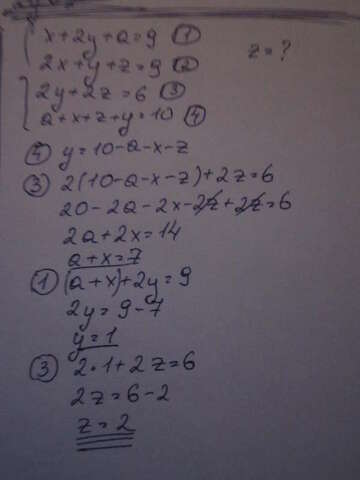 x+2y+a=9 ①
z=?
2x+y+z=9 ②
2y+2z=6 ③
a+x+z+y=10 ④
④ y=10-a-x-z
③ 2(10-a-x-z)+2z=6
20-2a-2x-2z+2z=6
2a+2x=14
a+x=7
① (a+x)+2y=9
2y=9-7
y=1
③ 2·1+2z=6
2z=6-2
z=2